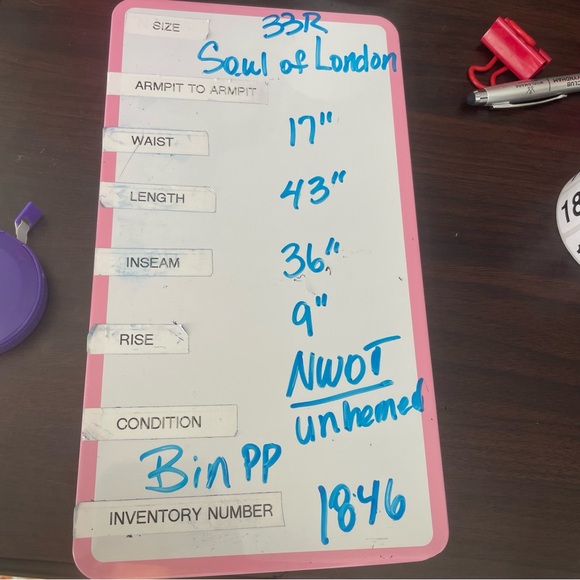 SIZE 33R
Soul of London
ARMPIT TO ARMPIT
WAIST 17"
LENGTH 43"
INSEAM 36"
RISE 9"
CONDITION NWOT
unhemed
Bin PP
INVENTORY NUMBER 1846
CLUB
WYNDHAM
18